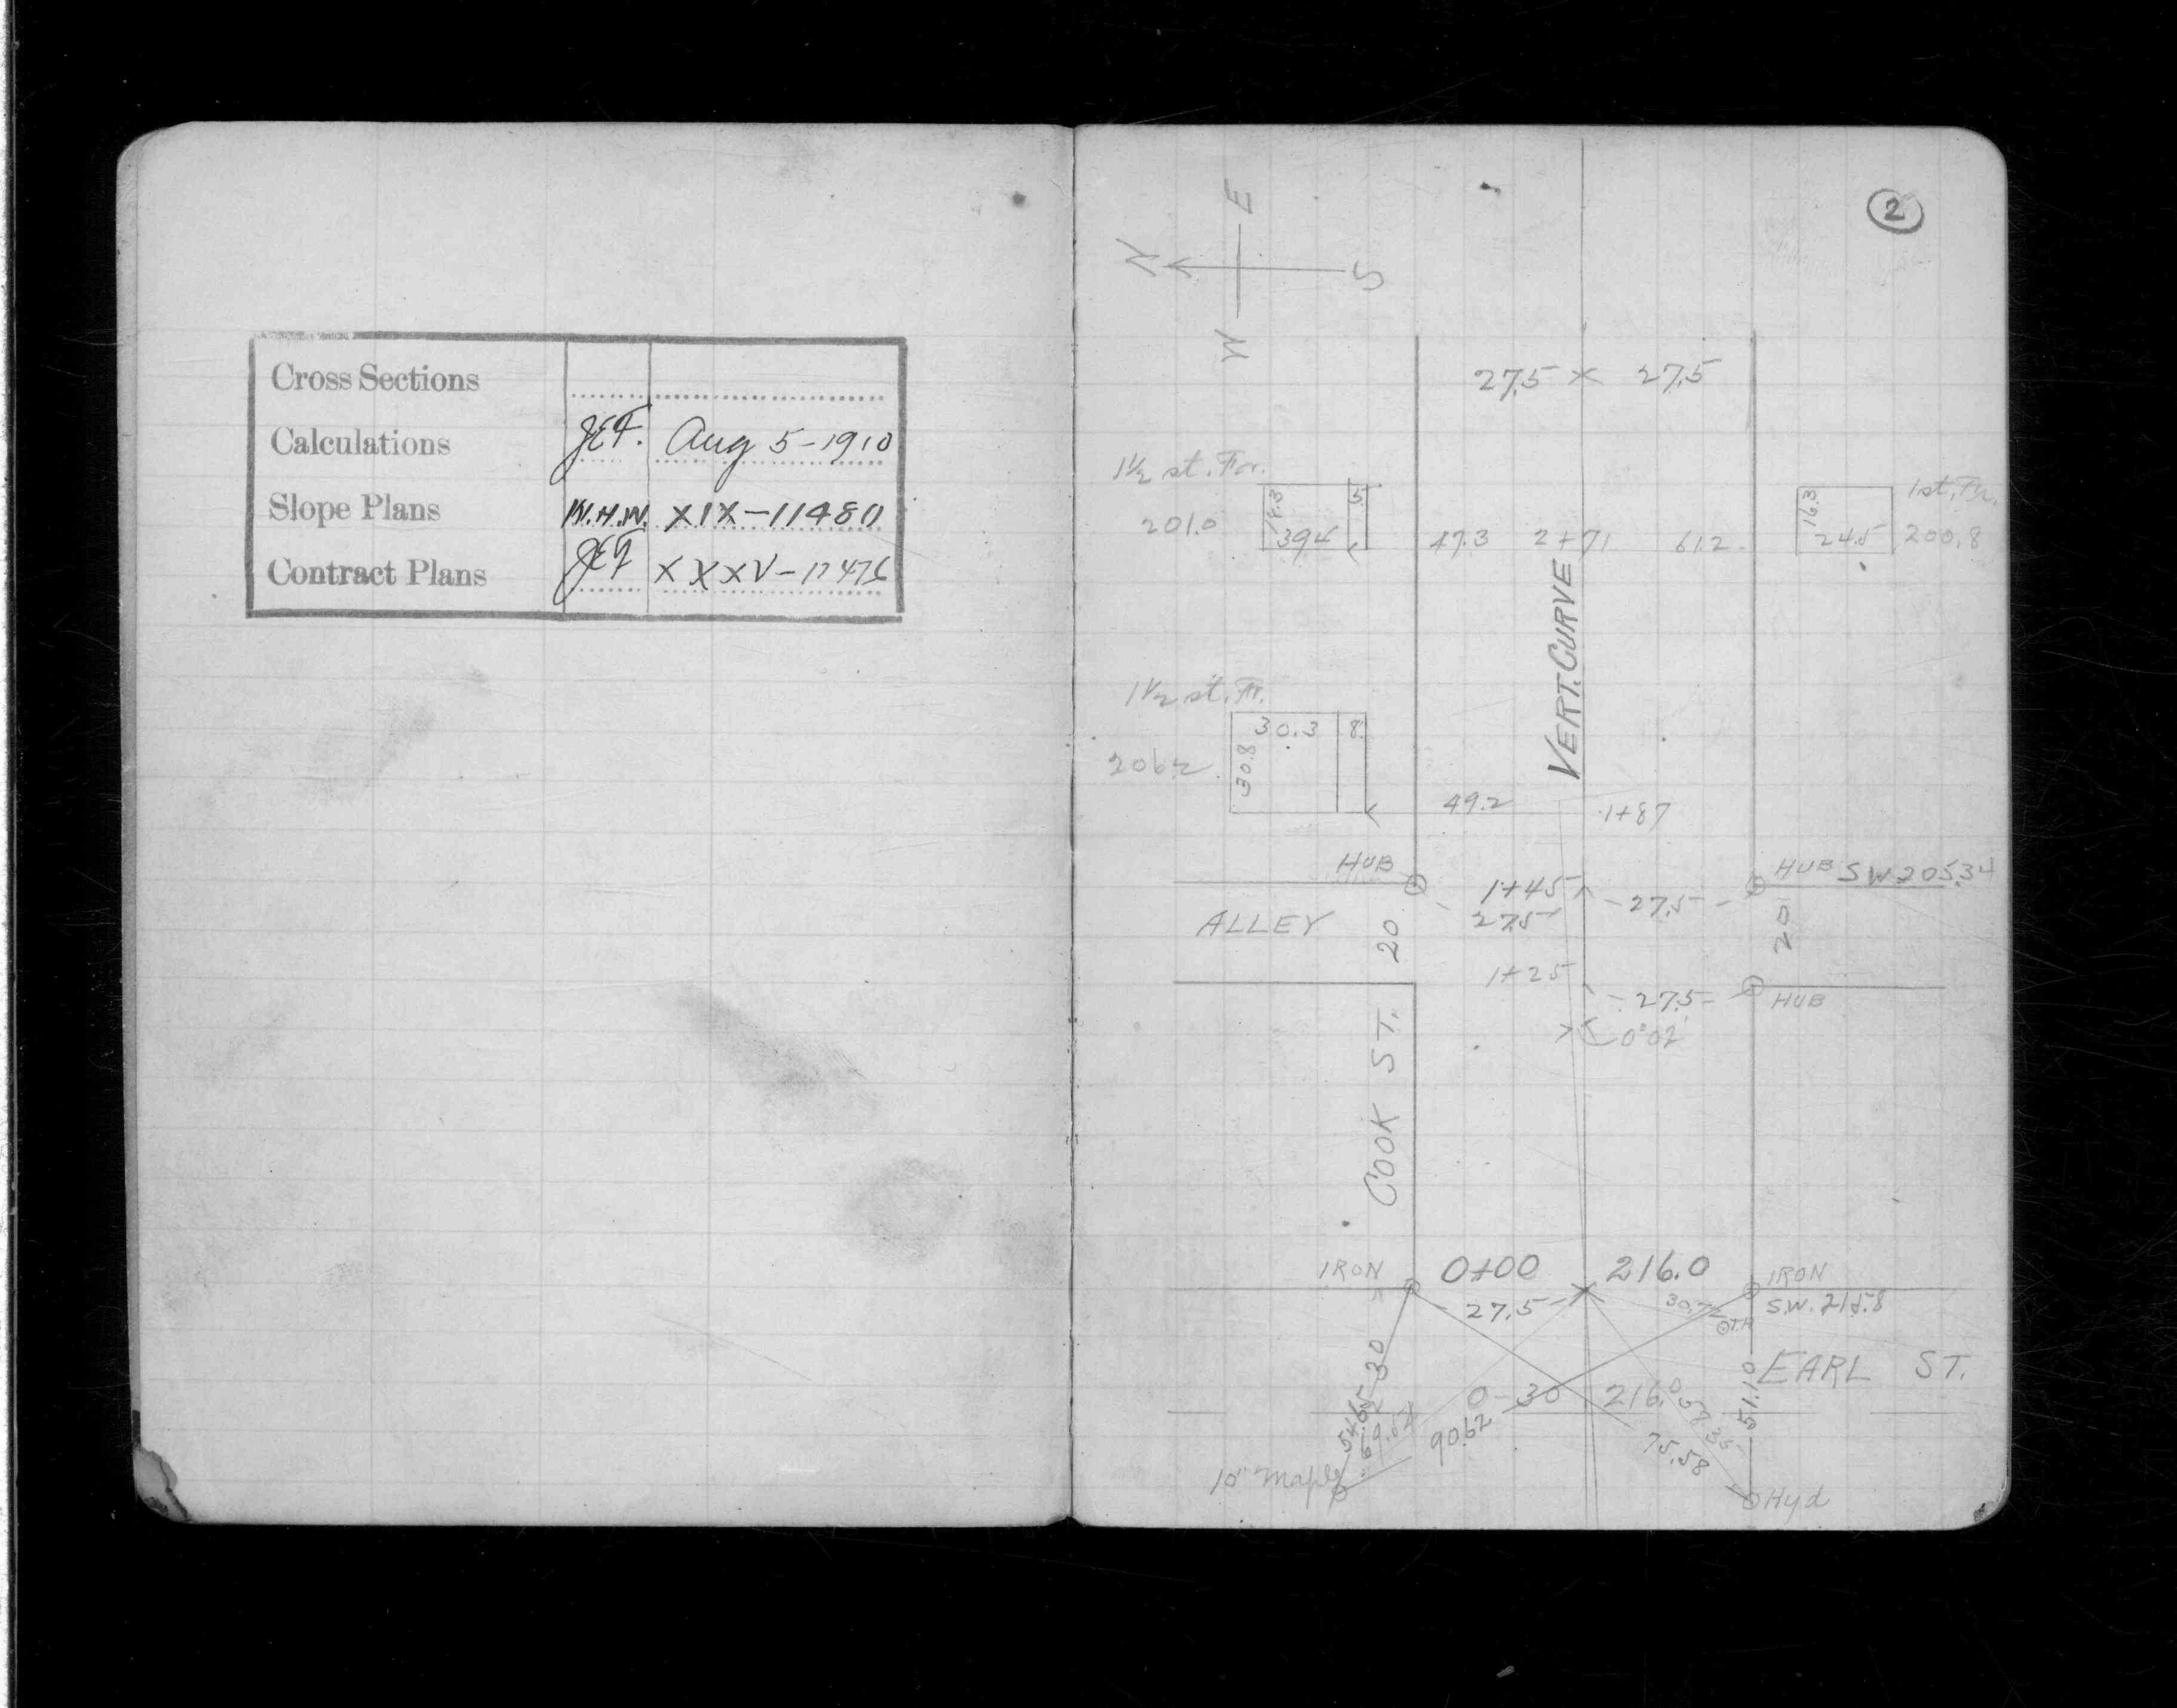 Cross Sections
Calculations JEF. Aug 5-1910
Slope Plans W.H.W. XIX-11480
Contract Plans JEF XXXV-11476
2
N E S W
27.5 × 27.5
1½ st. Fr.
1st. Fr.
201.0 18.3 39.4 5 47.3 2+71 61.2 16.3 24.5 200.8
VERT. CURVE
1½ st. Fr.
30.3 8
206.2 30.8
49.2 1+87
HUB HUB SW 205.34
1+45
27.5 27.5
ALLEY 20 20
1+25
27.5 HUB
0°02'
COOK ST.
IRON 0+00 216.0 IRON
27.5 30.7 S.W. 215.8
T.P.
EARL ST.
30 0-30 216.0
54.65 69.52 90.62 75.58 58.35 51.10
10" Maple
Hyd